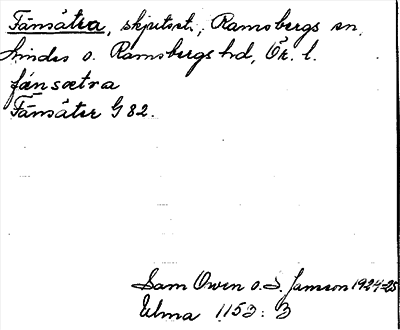 Fänsätra, skjutst., Ramsbergs sn,
Lindes o. Ramsbergs hd, Ör. l.
fänsætra
Fänsäter G 82.
Sam Owen o. S. Janson 1924-25
Ulma 1153:3